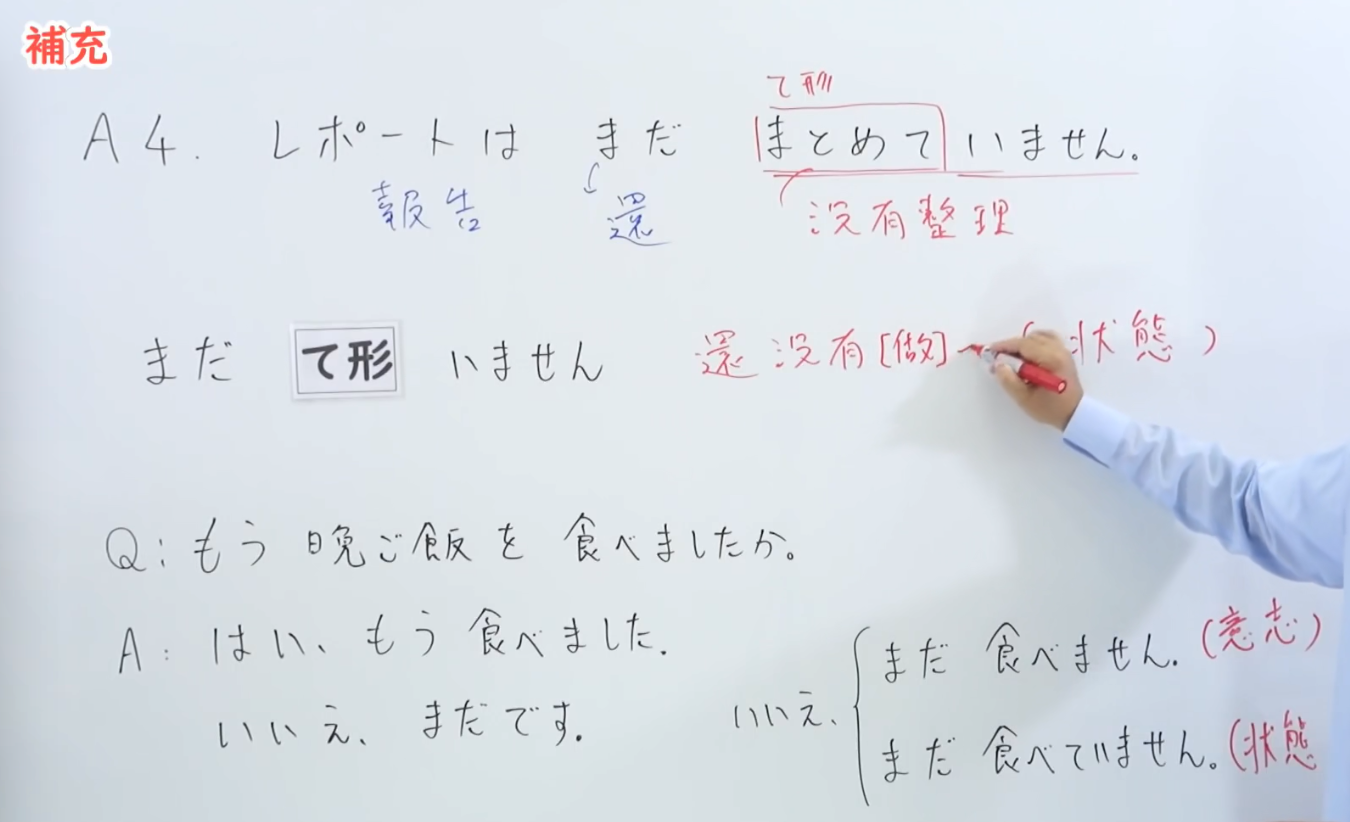 補充
て形
A4. レポートは まだ まとめて いません。
報告 還 没有整理
まだ て形 いません 還没有[做] (状態)
Q:もう 晩ご飯を 食べましたか。
A:はい、もう 食べました.
いいえ、まだです.
いいえ、
まだ 食べません. (意志)
まだ 食べていません。(状態